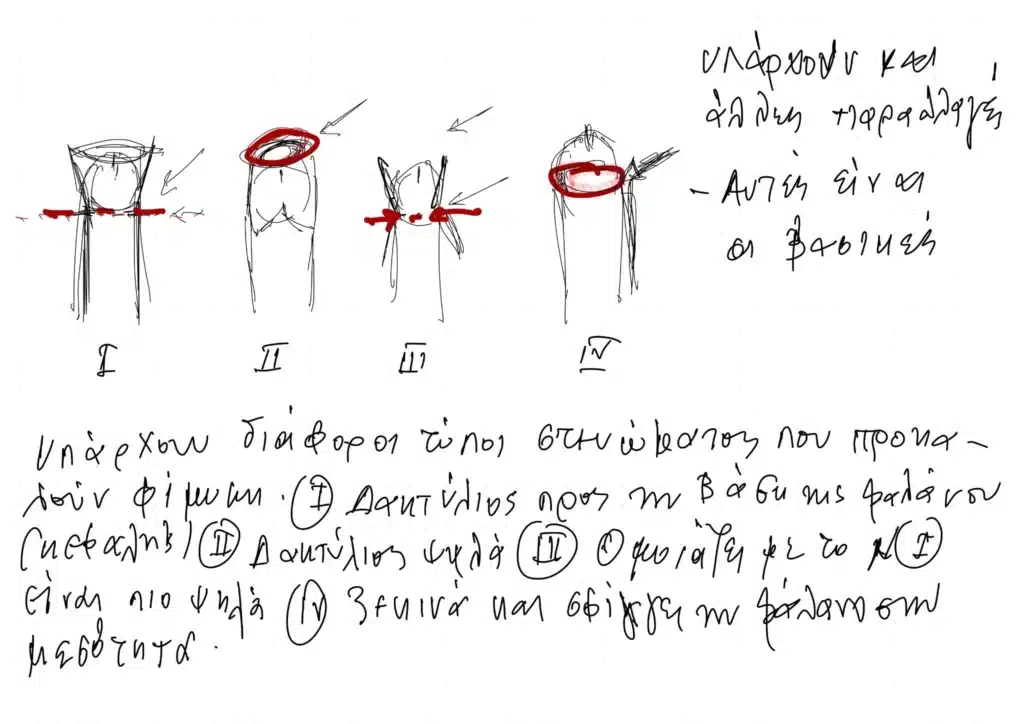 υπάρχουν και
άλλες παραλλαγές
- Αυτές είναι
οι βασικές
I II III IV
υπάρχουν διάφοροι τύποι στενώματος που προκα-
λούν φίμωση. (I) Δακτύλιος προς την βάση της βαλάνου
(κεφαλής) (II) Δακτύλιος ψηλά (III) Ομοιάζει με το (I)
είναι πιο ψηλά (IV) ξεκινά και σφίγγει την βάλανο στην
μεσότητα.